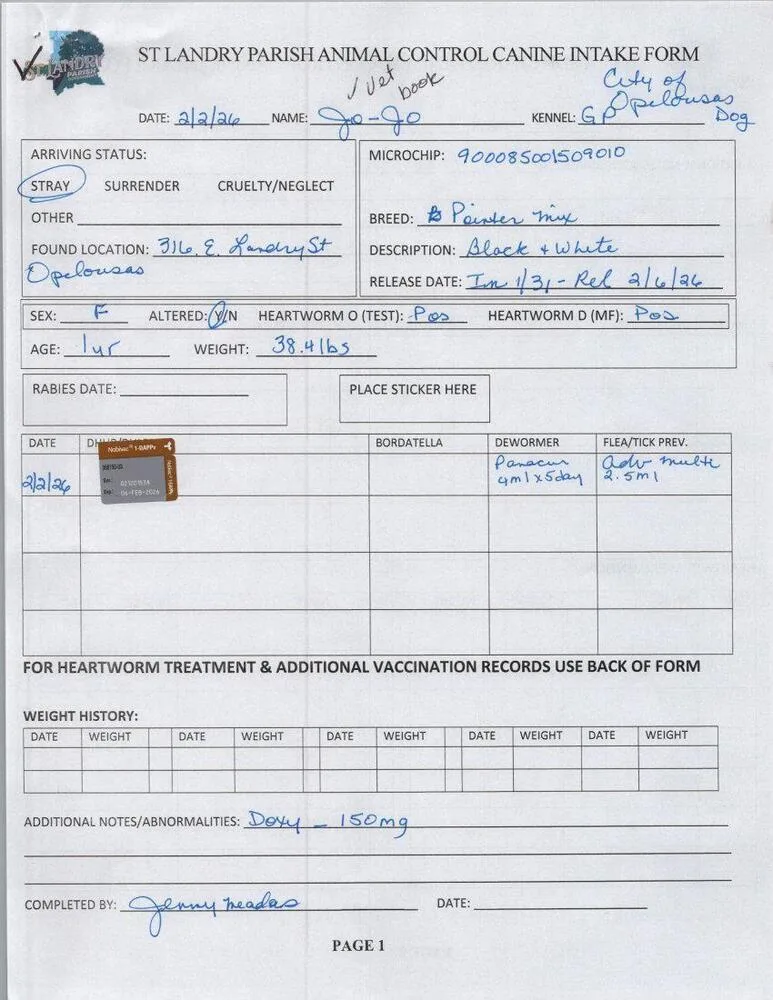 ST LANDRY
PARISH
ST LANDRY PARISH ANIMAL CONTROL CANINE INTAKE FORM
✓ Vet book
City of Opelousas Dog
DATE: 2/2/26 NAME: Jo-Jo KENNEL: GP
ARRIVING STATUS:
STRAY SURRENDER CRUELTY/NEGLECT
OTHER
FOUND LOCATION: 316. E. Landry St
Opelousas
MICROCHIP: 900085001509010
BREED: Pointer mix
DESCRIPTION: Black + White
RELEASE DATE: In 1/31 - Rel 2/6/26
SEX: F ALTERED: Y/N HEARTWORM O (TEST): Pos HEARTWORM D (MF): Pos
AGE: 1yr WEIGHT: 38.4lbs
RABIES DATE: PLACE STICKER HERE
DATE BORDATELLA DEWORMER FLEA/TICK PREV.
2/2/26 Panacur adv multi
4ml x 5day 2.5ml
Nobivac® 1-DAPPv
Exp. 06-FEB-2026
FOR HEARTWORM TREATMENT & ADDITIONAL VACCINATION RECORDS USE BACK OF FORM
WEIGHT HISTORY:
DATE WEIGHT DATE WEIGHT DATE WEIGHT DATE WEIGHT DATE WEIGHT
ADDITIONAL NOTES/ABNORMALITIES: Doxy - 150mg
COMPLETED BY: Jenny Meadas DATE:
PAGE 1